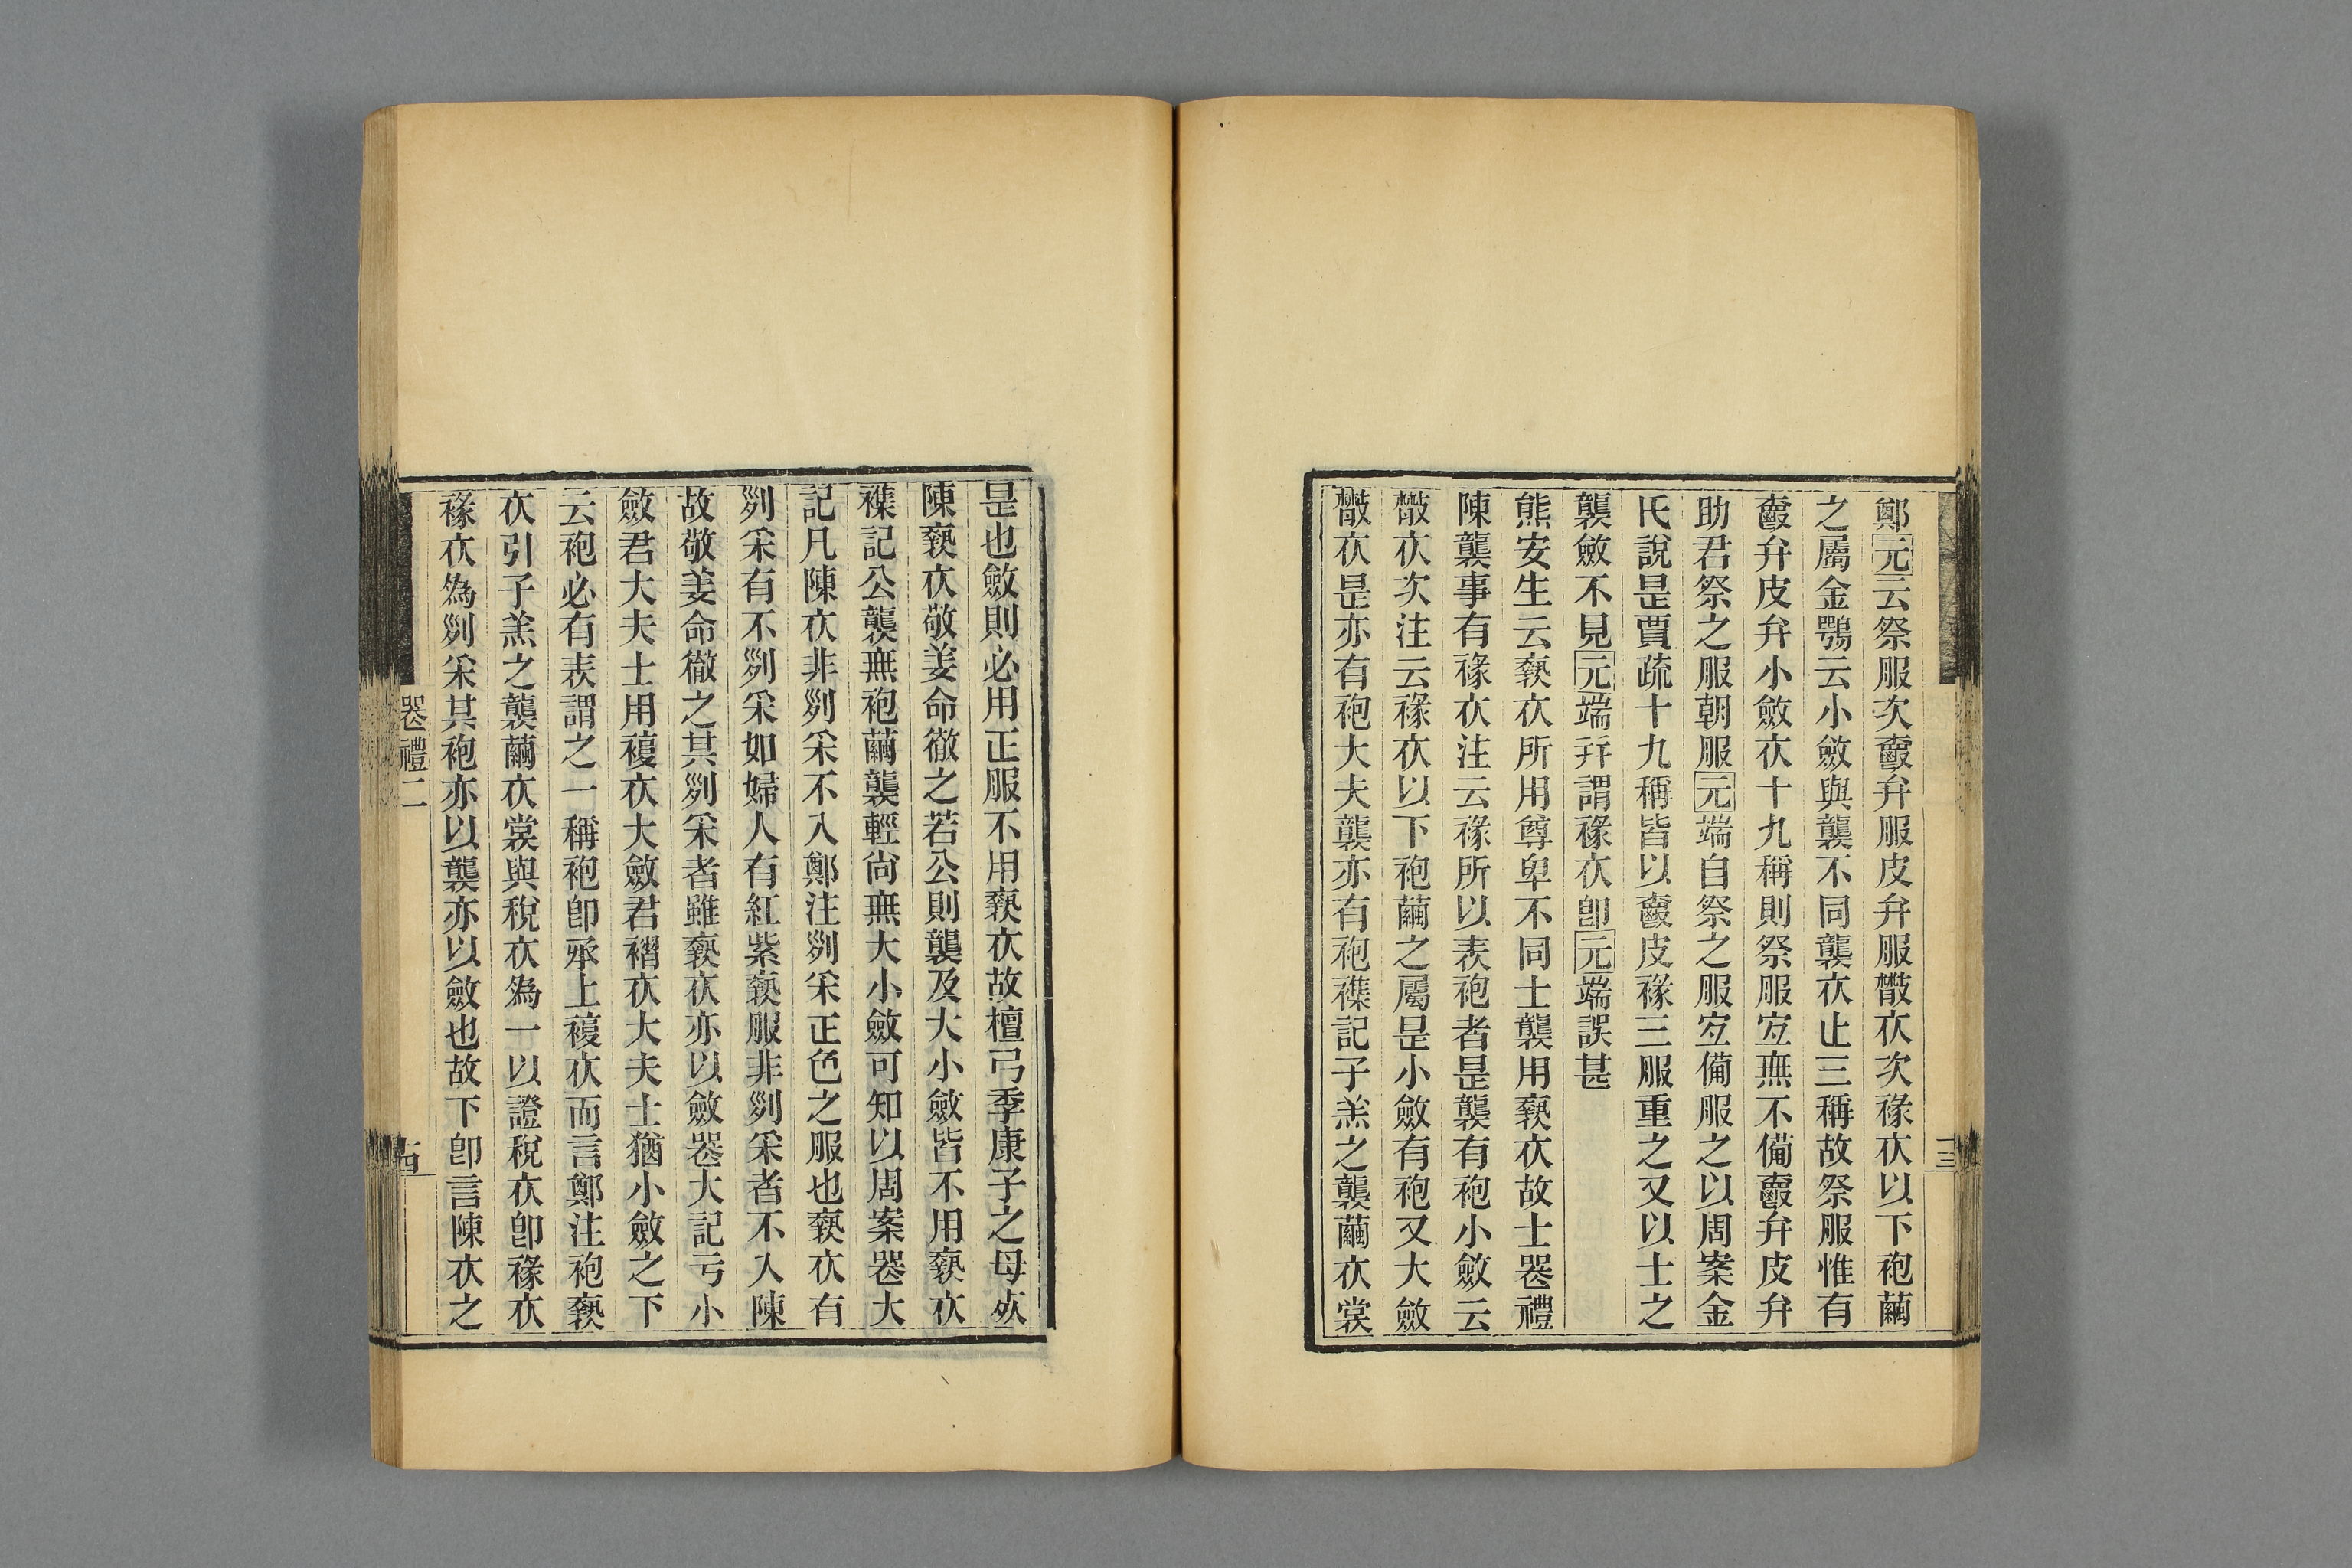 鄭元云祭服次爵弁服皮弁服散衣次褖衣以下袍繭
之屬金鶚云小斂與襲不同襲衣止三稱故祭服惟有
爵弁皮弁小斂衣十九稱則祭服宜無不備爵弁皮弁
助君祭之服朝服元端自祭之服宜備服之以周案金
氏說是賈疏十九稱皆以爵皮褖三服重之又以士之
襲斂不見元端幷謂褖衣卽元端誤甚
熊安生云褻衣所用尊卑不同士襲用褻衣故士喪禮
陳襲事有褖衣注云褖所以表袍者是襲有袍小斂云
散衣次注云褖衣以下袍繭之屬是小斂有袍又大斂
散衣是亦有袍大夫襲亦有袍襍記子羔之襲繭衣裳
十三
是也斂則必用正服不用褻衣故檀弓季康子之母死
陳褻衣敬姜命徹之若公則襲及大小斂皆不用褻衣
襍記公襲無袍繭襲輕尙無大小斂可知以周案喪大
記凡陳衣非列采不入鄭注列采正色之服也褻衣有
列采有不列采如婦人有紅紫褻服非列采者不入陳
故敬姜命徹之其列采者雖褻衣亦以斂喪大記亏小
斂君大夫士用複衣大斂君褶衣大夫士猶小斂之下
云袍必有表謂之一稱袍卽承上複衣而言鄭注袍褻
衣引子羔之襲繭衣裳與稅衣爲一以證稅衣卽褖衣
褖衣爲列采其袍亦以襲亦以斂也故下卽言陳衣之
喪禮二
十四